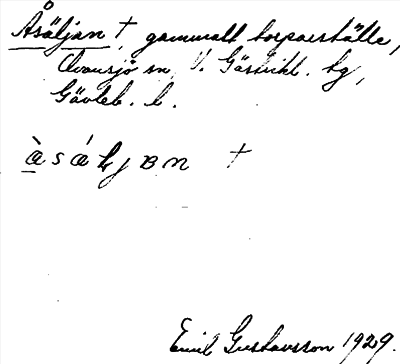 Åsäljan †, gammalt torparställe,
Ovansjö sn, V. Gästrikl. tg,
Gävleb. l.
†
Emil Gustavsson 1929.